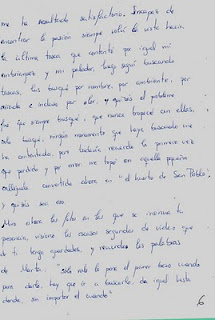 me ha resultado satisfactorio. Incapaz de
encontrar la pasión siempre volví la vista hacia
la última taza que contentó por igual mi
y mi paladar, luego seguí buscando
tazas, las busqué por nombre, por ambiente, por
e incluso por olor, y quizás el problema
fue que siempre busqué, que nunca tropecé con ellas,
solo busqué, ningún momento que haya buscando me
ha contentado, pero todavía recuerdo la primera vez
que perdido y por error me topé en aquella pequeña
callejuela convertida ahora en "el huerto de San Pablo",
y quizás sea eso.
Miro ahora las fotos en las que se insinua tu
presencia, visiono los escasos segundos de video que
de ti tengo guardados, y recuerdo las palabras
de Marta: "solo vale la pena el primer beso cuando
para darlo, hay que ir a buscarlo, da igual hasta
donde, sin importar el cuando"
6